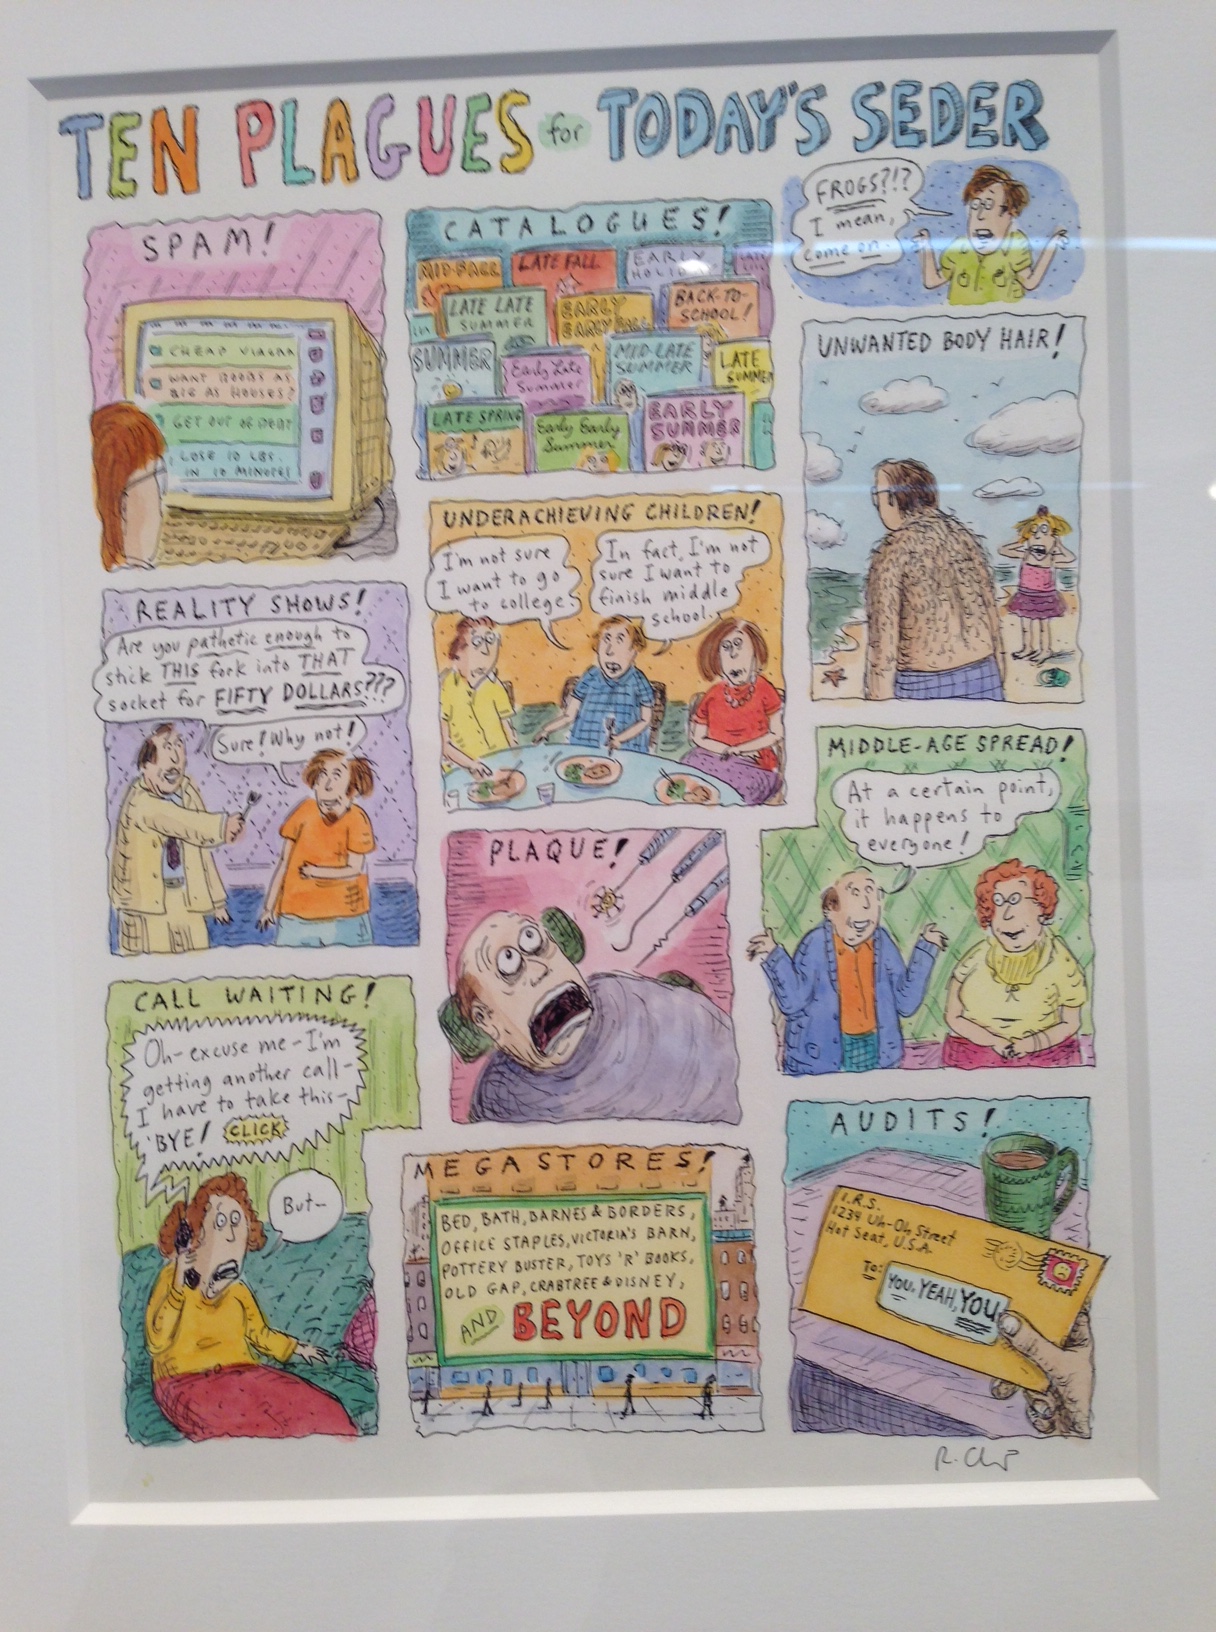 TEN PLAGUES for TODAY'S SEDER
FROGS?!?
I mean,
come on.
SPAM!
CHEAP VIAGRA
WANT BOOBS AS
BIG AS HOUSES?
GET OUT OF DEBT
LOSE 10 LBS.
IN 10 MINUTES!
CATALOGUES!
MID-FALL
LATE FALL
EARLY
HOLIDAY
LATE
LATE LATE
SUMMER
EARLY
EARLY FALL
BACK-TO-
SCHOOL!
SUMMER
Early Late
Summer
MID-LATE
SUMMER
LATE
SUMMER
LATE SPRING
Early Early
Summer
EARLY
SUMMER
UNWANTED BODY HAIR!
REALITY SHOWS!
Are you pathetic enough to
stick THIS fork into THAT
socket for FIFTY DOLLARS???
Sure! Why not!
UNDERACHIEVING CHILDREN!
I'm not sure
I want to go
to college.
In fact, I'm not
sure I want to
finish middle
school.
MIDDLE-AGE SPREAD!
At a certain point,
it happens to
everyone!
PLAQUE!
CALL WAITING!
Oh-excuse me-I'm
getting another call-
I have to take this-
'BYE! CLICK
But-
MEGASTORES!
BED, BATH, BARNES & BORDERS,
OFFICE STAPLES, VICTORIA'S BARN,
POTTERY BUSTER, TOYS 'R' BOOKS,
OLD GAP, CRABTREE & DISNEY,
AND BEYOND
AUDITS!
I.R.S.
1234 Uh-Oh Street
Hot Seat, U.S.A.
To:
YOU, YEAH, YOU